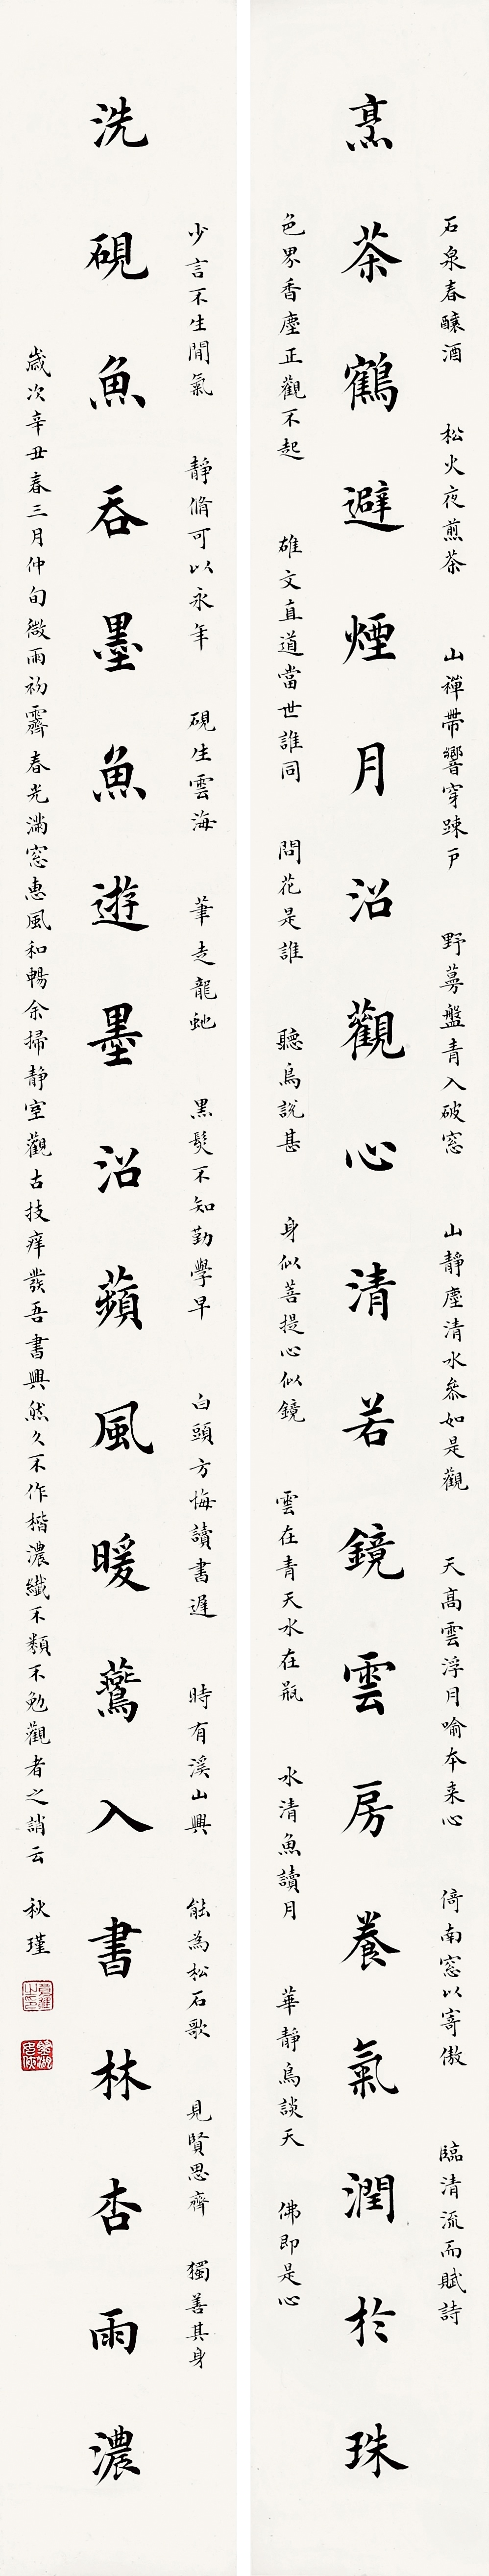 石泉春釀酒 松火夜煎茶 山禪帶響穿踈戶 野蔓盤青入破窓 山靜塵清水參如是觀 天高雲浮月喻本来心 倚南窓以寄傲 臨清流而賦詩
烹茶鶴避煙月沼觀心清若鏡雲房養氣潤於珠
色界香塵正觀不起 雄文直道當世誰同 問花是誰 聽鳥說甚 身似菩提心似鏡 雲在青天水在瓶 水清魚讀月 華靜鳥談天 佛即是心
少言不生閒氣 靜脩可以永年 硯生雲海 筆走龍虵 黑髮不知勤學早 白頭方悔讀書遲 時有溪山興 能為松石歌 見賢思齊 獨善其身
洗硯魚吞墨魚遊墨沼蘋風暖鶯入書林杏雨濃
歲次辛丑春三月仲旬微雨初霽春光滿窓惠風和暢余掃静室觀古技痒發吾書興然久不作楷濃纖不類不勉觀者之誚云 秋瑾